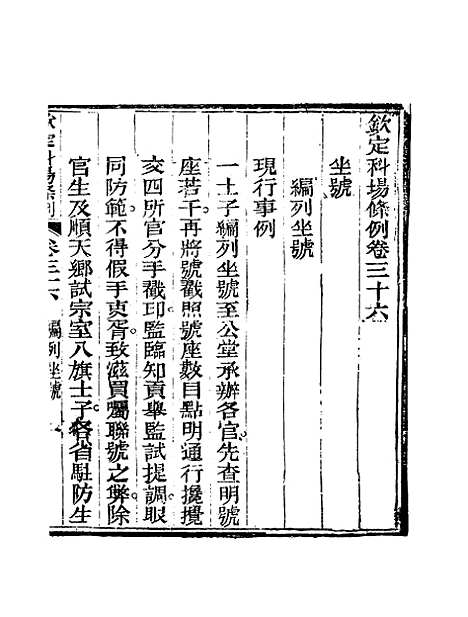 欽定科場條例卷三十六
坐號
編列坐號
現行事例
一士子編列坐號至公堂承辦各官先查明號
座若干再將號戳照號座數目點明通行攙攪
亥四所官分手戳印監臨知貢舉監試提調眼
同防範不得假手吏胥致滋買囑聯號之弊除
官生及順天鄉試宗室八旗士子各省駐防生
欽定科場條例 卷三十六 編列坐號